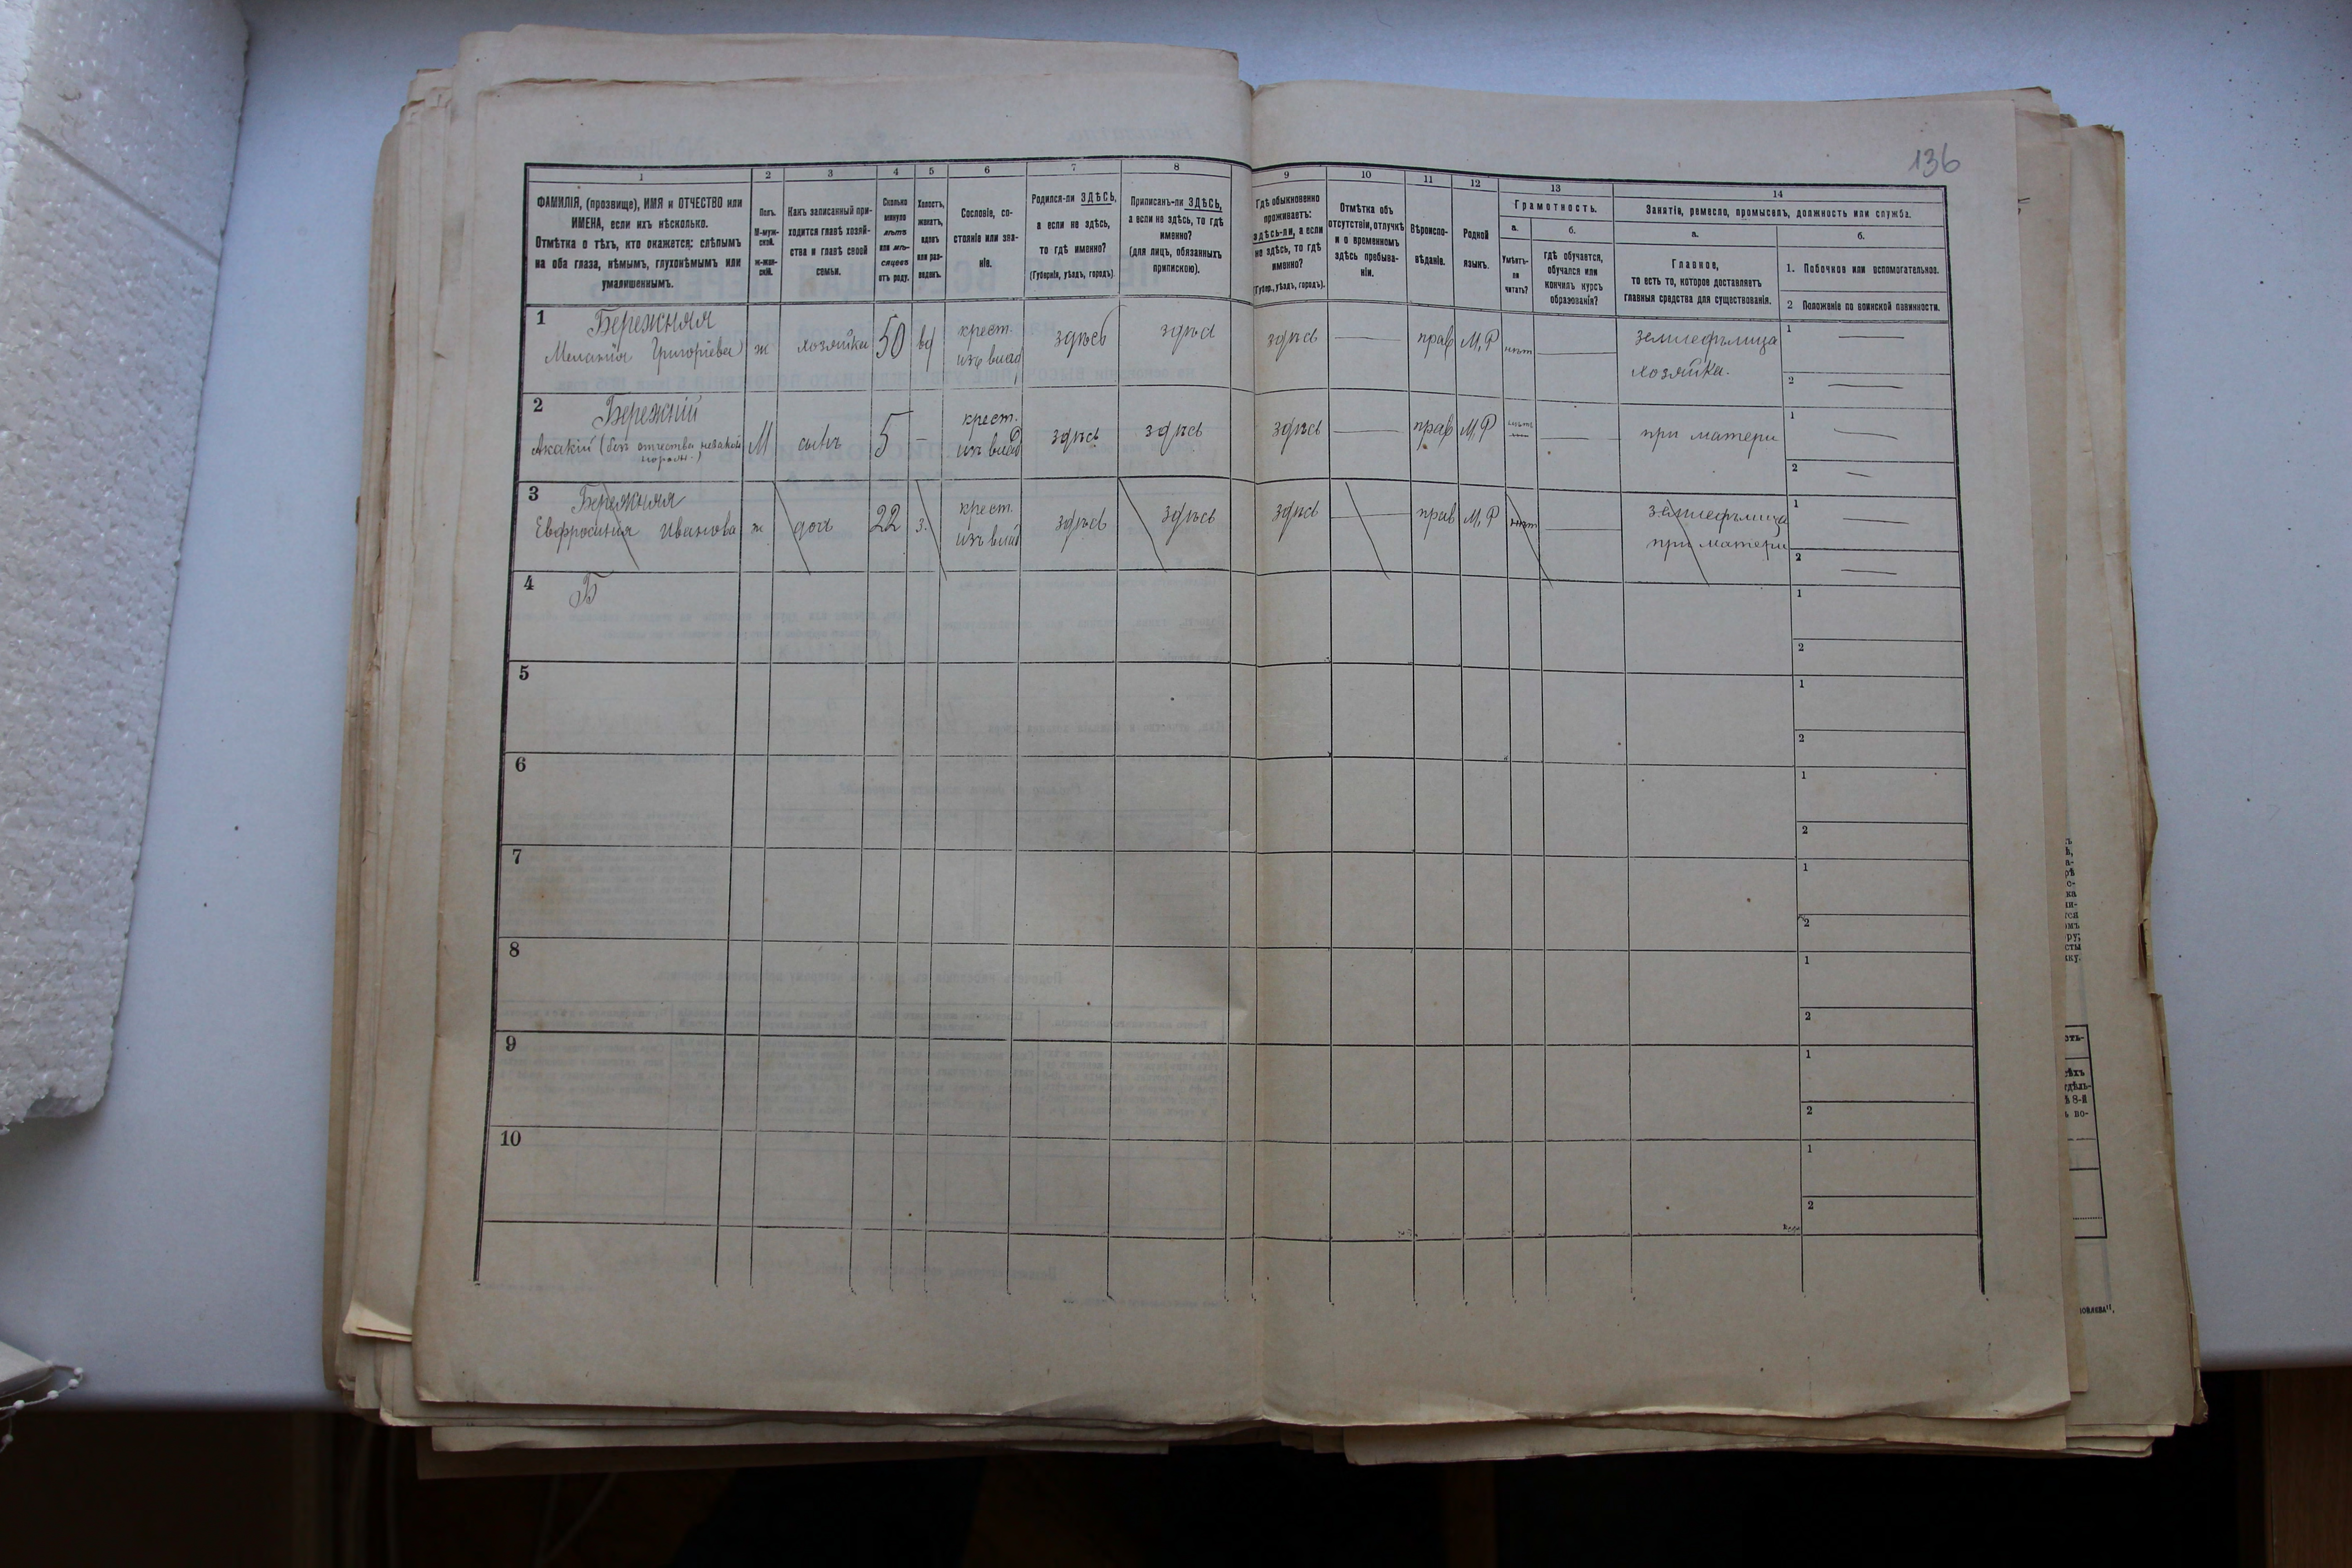 136
1 2 3 4 5 6 7 8 9 10 11 12 13 14
ФАМИЛІЯ, (прозвище), ИМЯ и ОТЧЕСТВО или
ИМЕНА, если ихъ нѣсколько.
Отмѣтка о тѣхъ, кто окажется: слѣпымъ
на оба глаза, нѣмымъ, глухонѣмымъ или
умалишеннымъ.
Полъ.
М-муж-
ской.
Ж-жен-
скій.
Какъ записанный при-
ходится главѣ хозяй-
ства и главѣ своей
семьи.
Сколько
минуло
лѣтъ
или мѣ-
сяцевъ
отъ роду.
Холостъ,
женатъ,
вдовъ
или раз-
веденъ.
Сословіе, со-
стояніе или зва-
ніе.
Родился-ли ЗДѢСЬ,
а если не здѣсь,
то гдѣ именно?
(Губернія, уѣздъ, городъ).
Приписанъ-ли ЗДѢСЬ,
а если не здѣсь, то гдѣ
именно?
(для лицъ, обязанныхъ
припискою).
Гдѣ обыкновенно
проживаетъ:
здѣсь-ли, а если
не здѣсь, то гдѣ
именно?
(Губер., уѣздъ, городъ).
Отмѣтка объ
отсутствіи, отлучкѣ
и о временномъ
здѣсь пребыва-
ніи.
Вѣроиспо-
вѣданіе.
Родной
языкъ.
Грамотность.
а.
Умѣетъ-
ли
читать?
б.
гдѣ обучается,
обучался или
кончилъ курсъ
образованія?
Занятіе, ремесло, промыселъ, должность или служба.
а.
Главное,
то есть то, которое доставляетъ
главныя средства для существованія.
б.
1. Побочное или вспомогательное.
2 Положеніе по воинской повинности.
1 Бережняя
Меланія Григоріева ж хозяйка 50 вд крест. изъ влад здѣсь здѣсь здѣсь — прав М,Р нѣт — землефълица хозяйка. 1 — 2 —
2 Бережній
Акакій (безъ отчества, незакон норожд.) М сынъ 5 – крест. изъ влад здѣсь здѣсь здѣсь — прав М,Р — при матери 1 — 2 —
3 Бережняя
Евфросинія Иванова ж доч 22 з. крест. изъ влад здѣсь здѣсь здѣсь — прав М,Р нѣт — землефълица при матери 1 — 2 —
4 Б 1 2
5 1 2
6 1 2
7 1 2
8 1 2
9 1 2
10 1 2